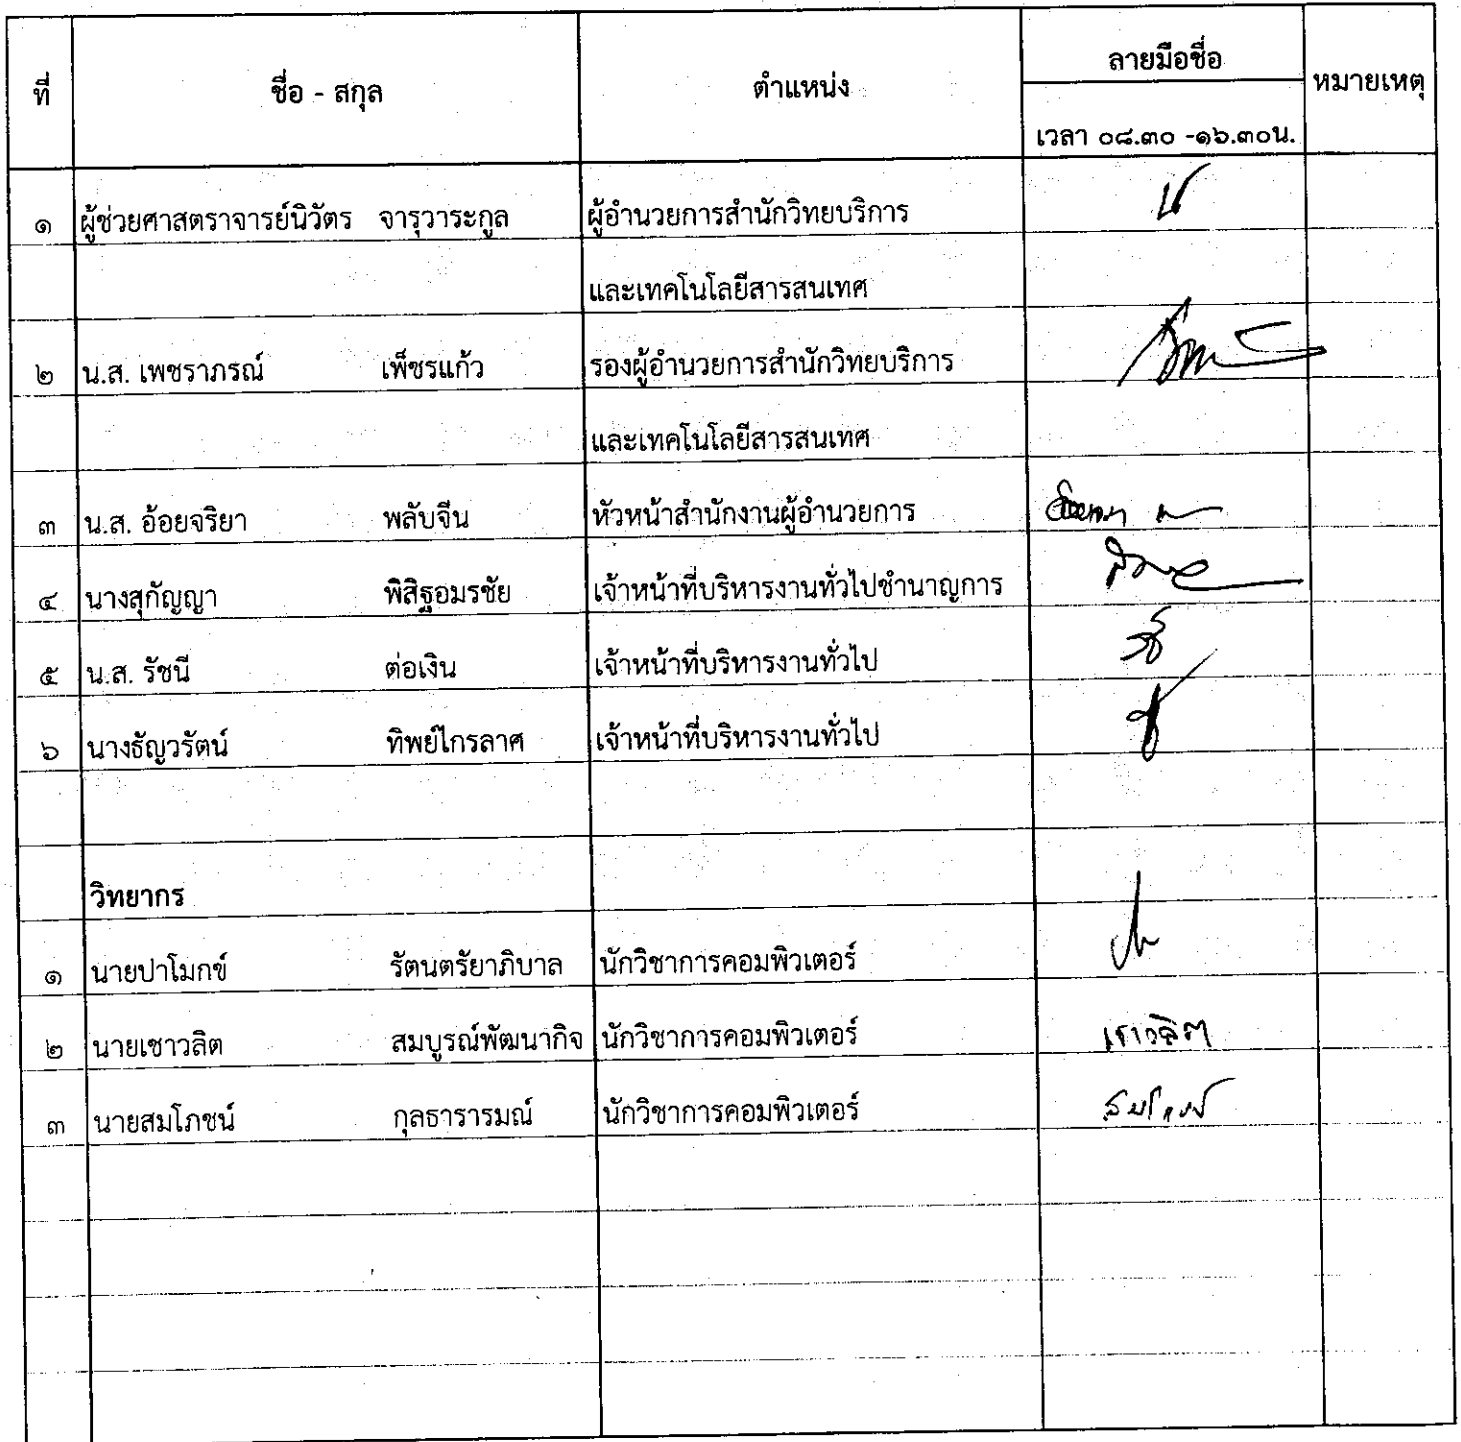 ที่ ชื่อ - สกุล ตำแหน่ง ลายมือชื่อ หมายเหตุ
เวลา ๐๘.๓๐ -๑๖.๓๐น.
๑ ผู้ช่วยศาสตราจารย์นิวัตร จารุวาระกูล ผู้อำนวยการสำนักวิทยบริการ
และเทคโนโลยีสารสนเทศ
๒ น.ส. เพชราภรณ์ เพ็ชรแก้ว รองผู้อำนวยการสำนักวิทยบริการ
และเทคโนโลยีสารสนเทศ
๓ น.ส. อ้อยจริยา พลับจีน หัวหน้าสำนักงานผู้อำนวยการ
๔ นางสุกัญญา พิสิฐอมรชัย เจ้าหน้าที่บริหารงานทั่วไปชำนาญการ
๕ น.ส. รัชนี ต่อเงิน เจ้าหน้าที่บริหารงานทั่วไป
๖ นางธัญวรัตน์ ทิพย์ไกรลาศ เจ้าหน้าที่บริหารงานทั่วไป
วิทยากร
๑ นายปาโมกข์ รัตนตรัยาภิบาล นักวิชาการคอมพิวเตอร์
๒ นายเชาวลิต สมบูรณ์พัฒนากิจ นักวิชาการคอมพิวเตอร์ เชาวลิต
๓ นายสมโภชน์ กุลธารารมณ์ นักวิชาการคอมพิวเตอร์ สมโภชน์